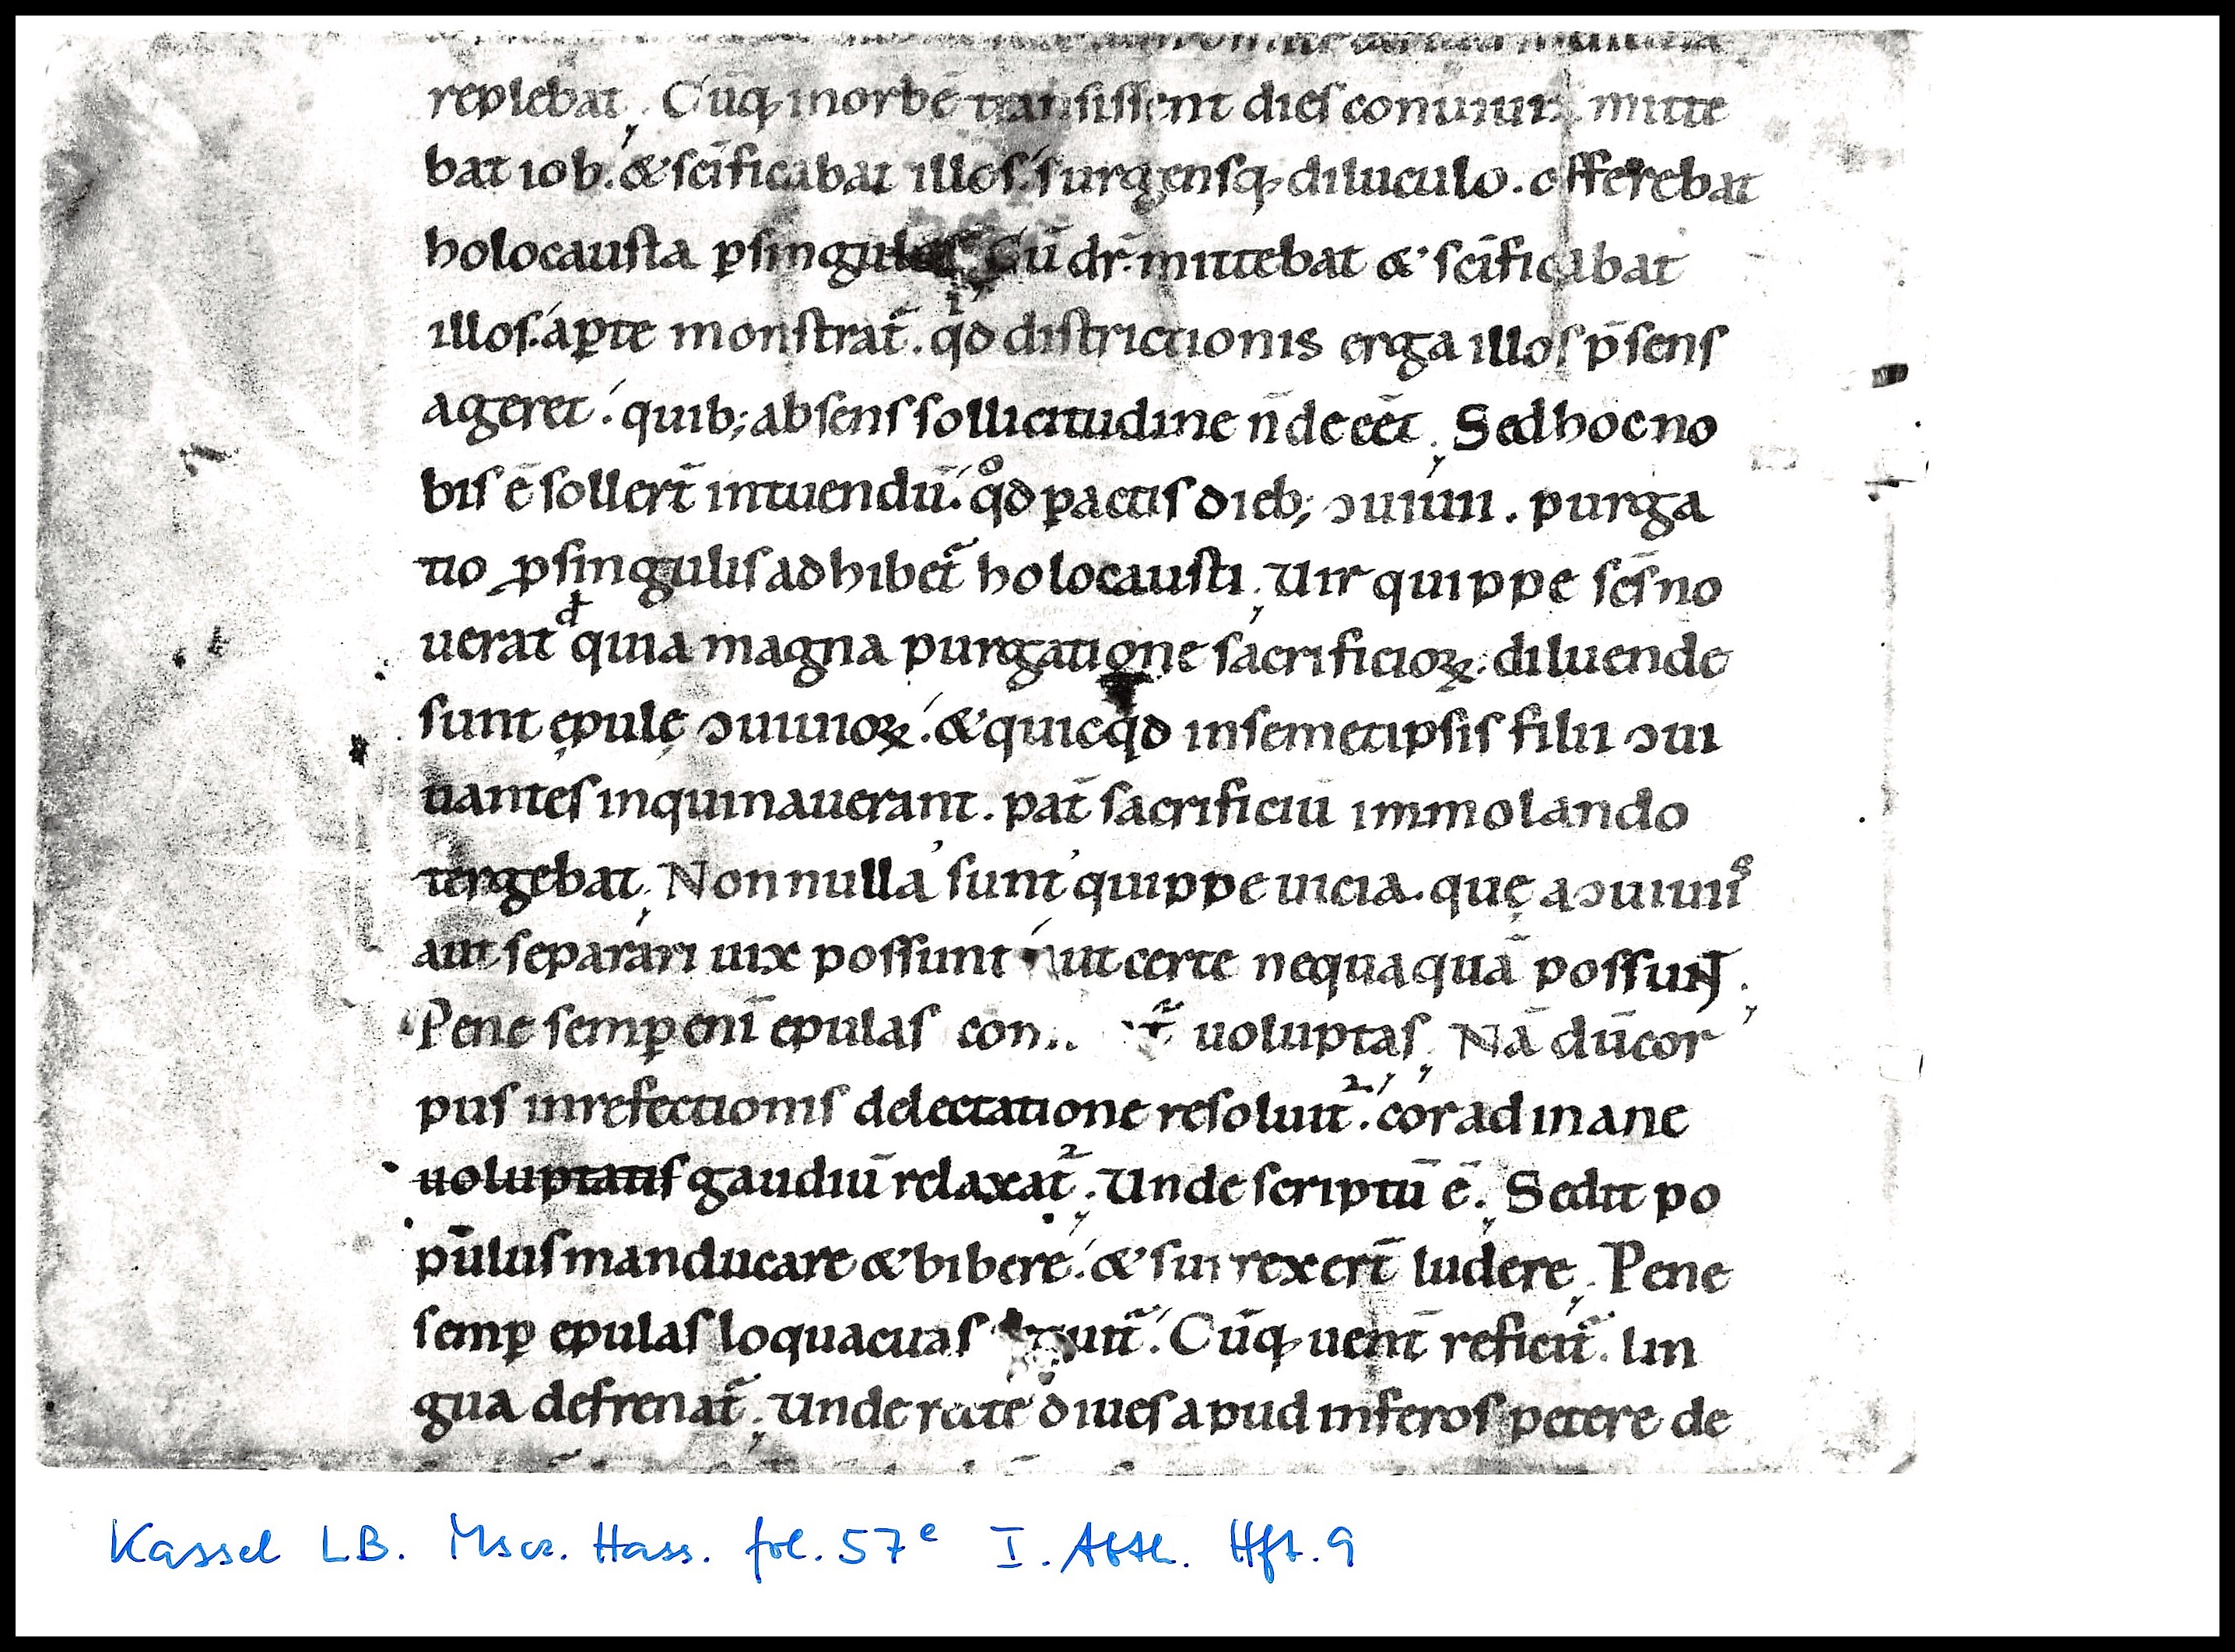 replebat. Cūq; inorbē transissent dies conuiuii mitte
bat iob. & scīficabat illos. surgensq; diluculo. offerebat
holocausta ꝑsingulos. Cū dr̄. mittebat & scīficabat
illos. aꝑte monstrat᷑. qͥd districtionis erga illos p̄sens
ageret. quib; absens sollicitudine n̄ deeēt. Sed hoc no
bis ē sollert̄ intuendū. qͦd ꝑactis dieb; ↄuiuii. purga
tio ꝓsingulis adhibet᷑ holocausti. Vir quippe scs̄ no
uerat quia magna purgatione sacrificioꝝ. diluende
sunt ępulę ↄuiuioꝝ. & quicqd insemetipsis filii ↄui
uantes inquinauerant. pat̄ sacrificiū immolando
tergebat. Nonnulla sunt quippe uicia. quę aↄuiuiis
aut separari uix possunt aut certe nequaquā possunt.
Pene semꝑ enī epulas com.. t᷑ uoluptas. Nā dūcor
pus inrefectionis delectatione resoluit᷑. cor ad inane
uoluptatis gaudiū relaxat᷑. Vnde scriptū ē. Sedit po
pūlus manducare & bibere. & surrexert̄ ludere. Pene
semꝑ epulas loquacitas uit᷑. Cūq; uent̄ reficit᷑. lin
gua defrenat᷑. Vnde recte diues apud inferos petere de
Kassel LB. Mscr. Hass. fol. 57ᵉ I. Abth. Hft. 9